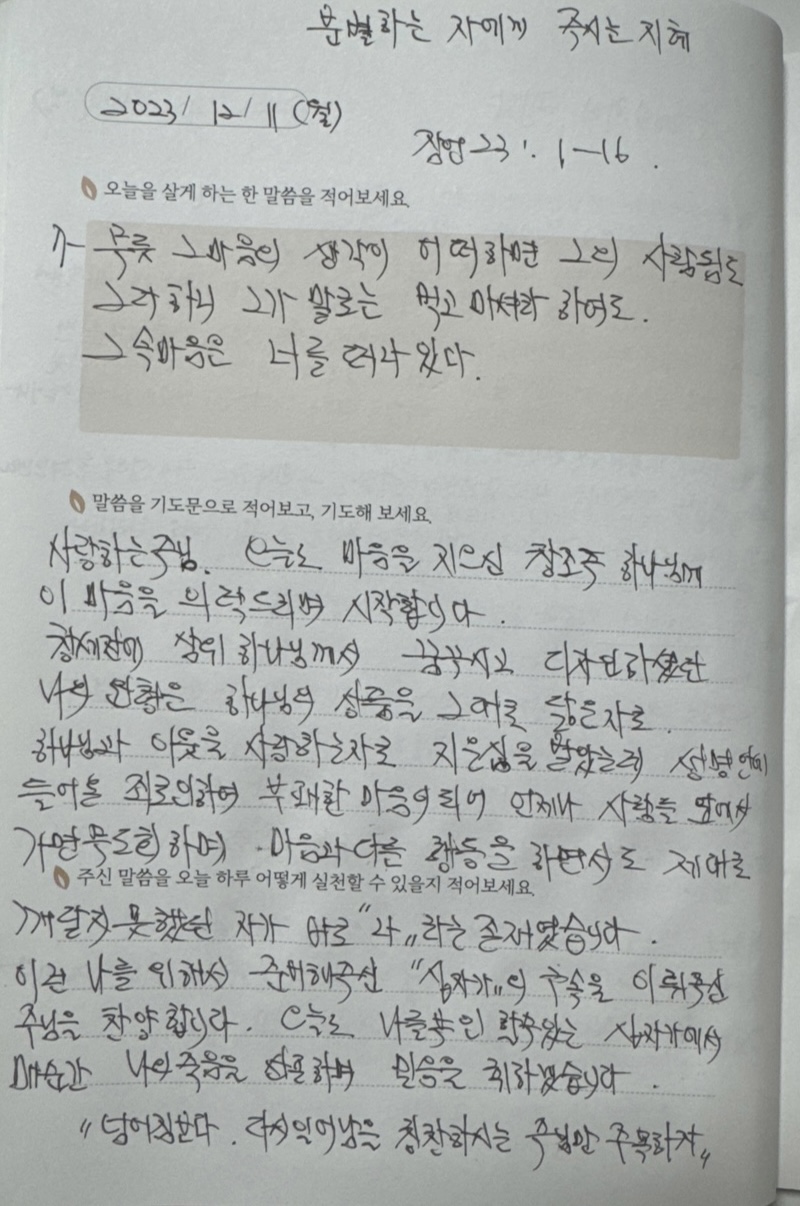 분별하는 자에게 주시는 지혜
2023/ 12/ 11 (월)
잠언 23 : 1-16 .
오늘을 살게 하는 한 말씀을 적어보세요.
7- 무릇 그마음의 생각이 어떠하면 그의 사람됨도
그러하니 그가 말로는 먹고 마셔라 하여도.
그 속마음은 너를 떠나 있다.
말씀을 기도문으로 적어보고, 기도해 보세요.
사랑하는 주님. 오늘도 마음을 지으신 창조주 하나님께
이 마음을 의탁드리며 시작합니다.
창세전에 삼위 하나님께서 꿈꾸시고 디자인하셨던
나의 원형은 하나님의 성품을 그대로 닮은자로.
하나님과 이웃을 사랑하는자로 지은심을 받았는데 선악안에
들어온 죄로인하여 부패한 마음이 되어 언제나 사람들 앞에서
가면 목도회하며 . 마음과 다른 행동을 하면서도 제대로
주신 말씀을 오늘 하루 어떻게 실천할 수 있을지 적어보세요.
깨닫지 못했던 자가 바로 "나" 라는 존재였습니다.
이런 나를 위해서 준비해주신 "십자가"의 구속을 이뤄주신
주님을 찬양합니다. 오늘도 나를 십자가에서
매순간 나의 죽음을 하며 믿음을 취하겠습니다.
"넘어짐보다. 다시일어남을 칭찬하시는 주님만 주목하자"